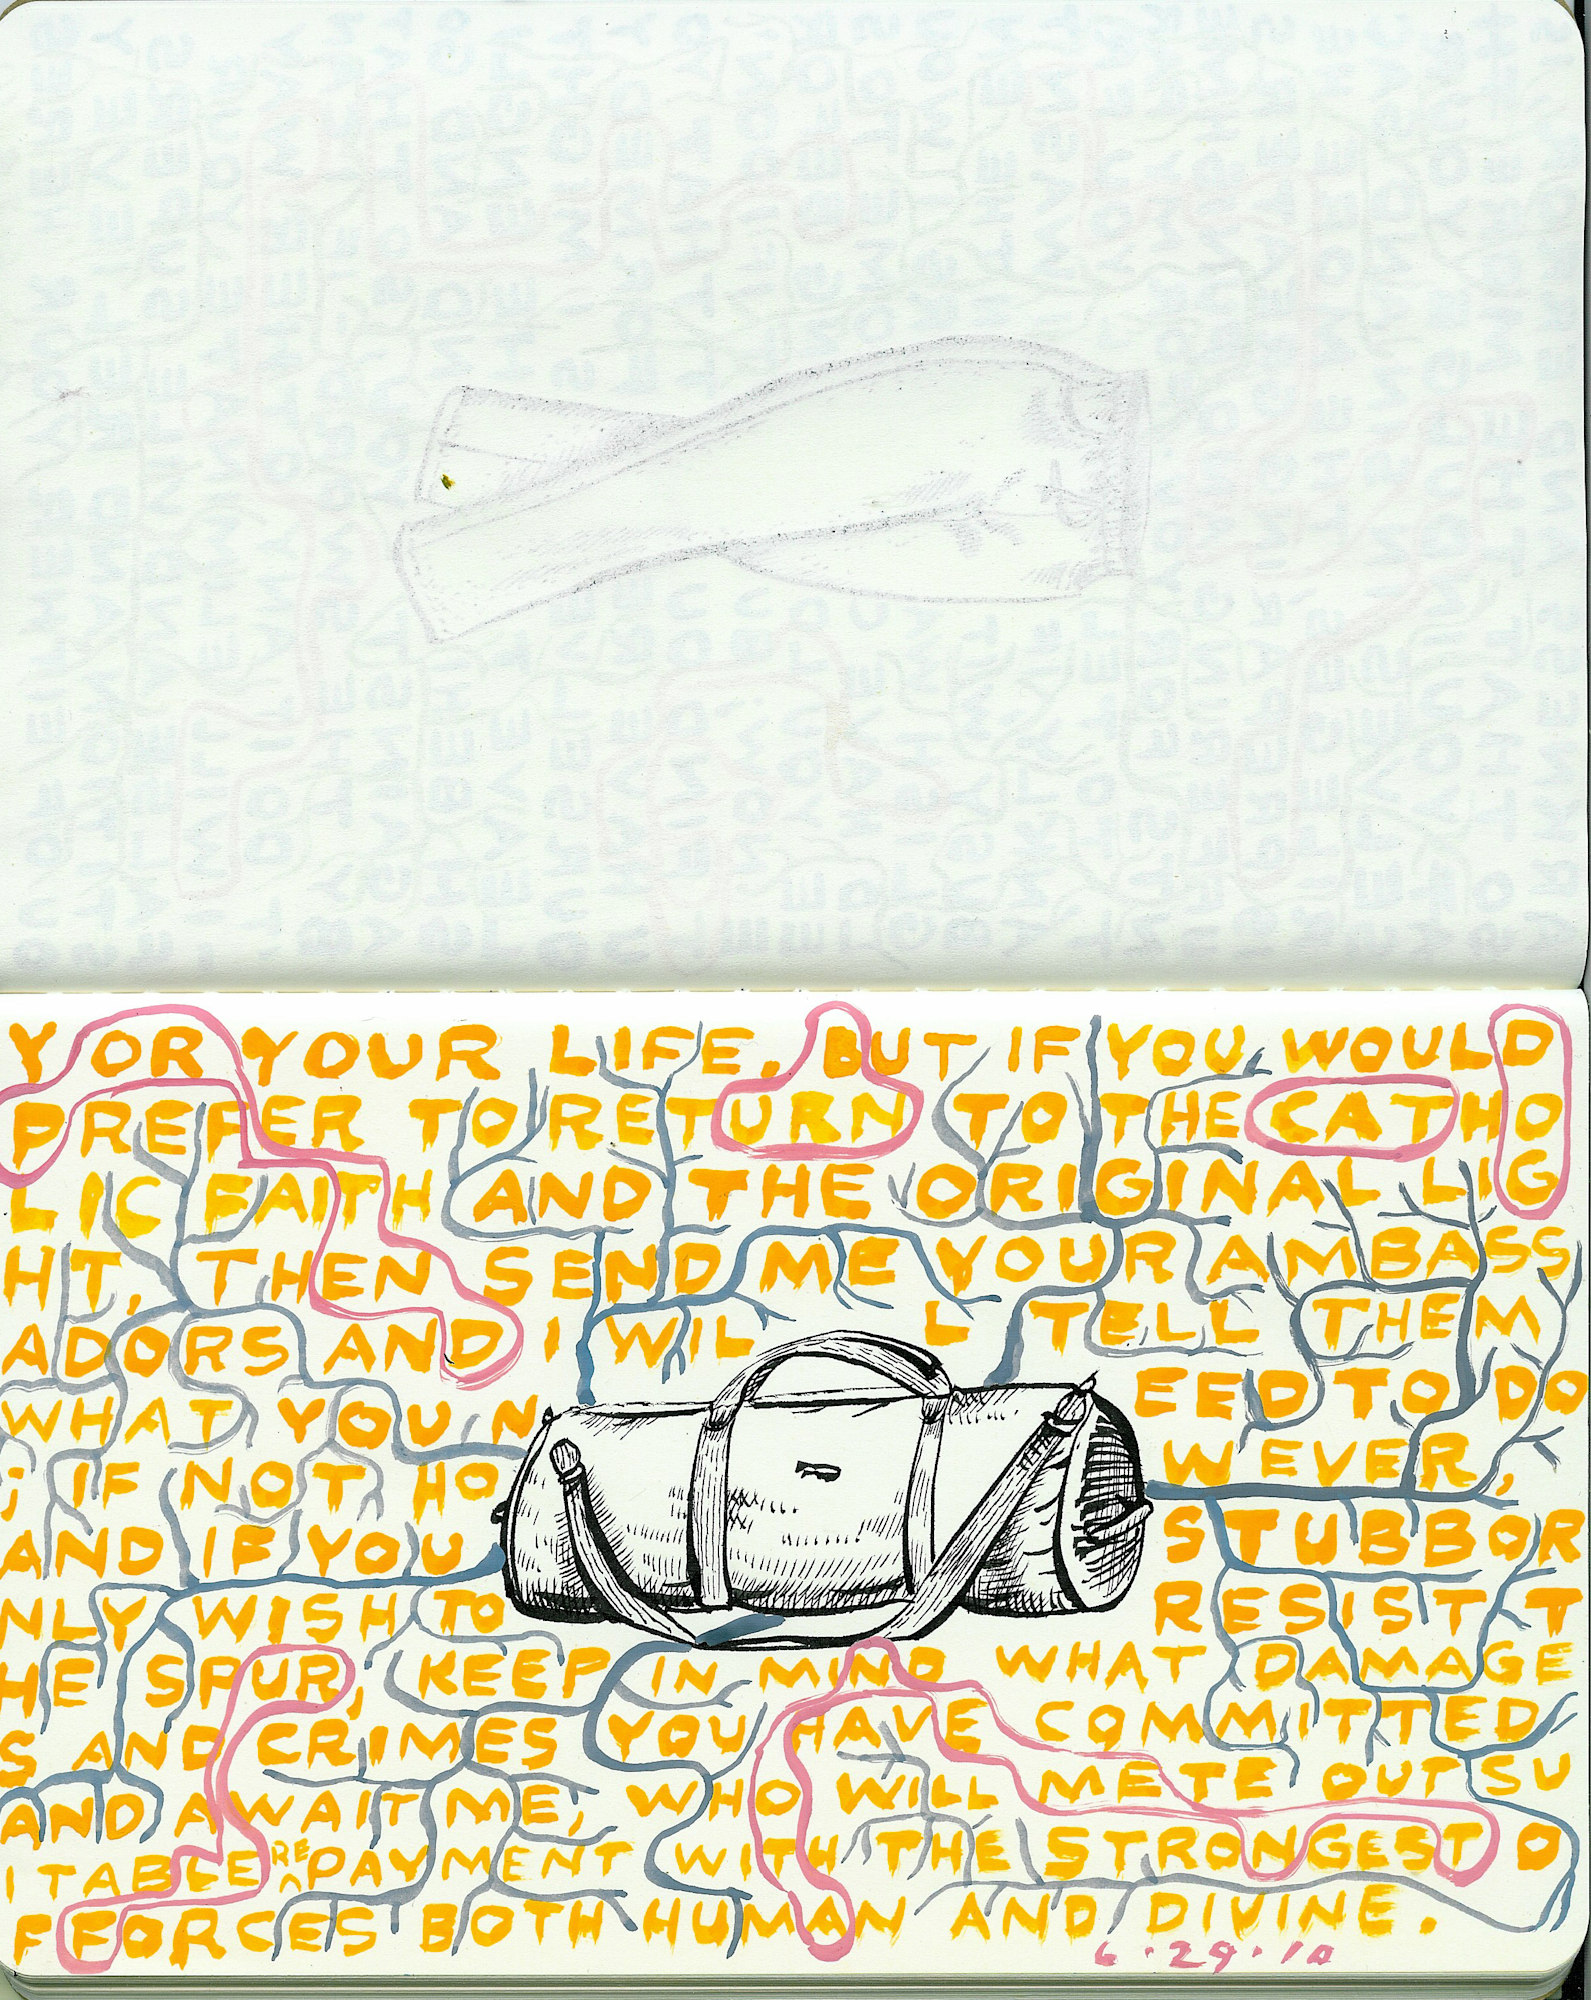 Y OR YOUR LIFE, BUT IF YOU WOULD
PREFER TO RETURN TO THE CATHO
LIC FAITH AND THE ORIGINAL LIG
HT, THEN SEND ME YOUR AMBASS
ADORS AND I WIL L TELL THEM
WHAT YOU N EED TO DO
; IF NOT HO WEVER,
AND IF YOU STUBBOR
NLY WISH TO RESIST T
HE SPUR, KEEP IN MIND WHAT DAMAGE
S AND CRIMES YOU HAVE COMMITTED
AND AWAIT ME, WHO WILL METE OUT SU
ITABLE REPAYMENT WITH THE STRONGEST O
F FORCES BOTH HUMAN AND DIVINE.
6.29.10